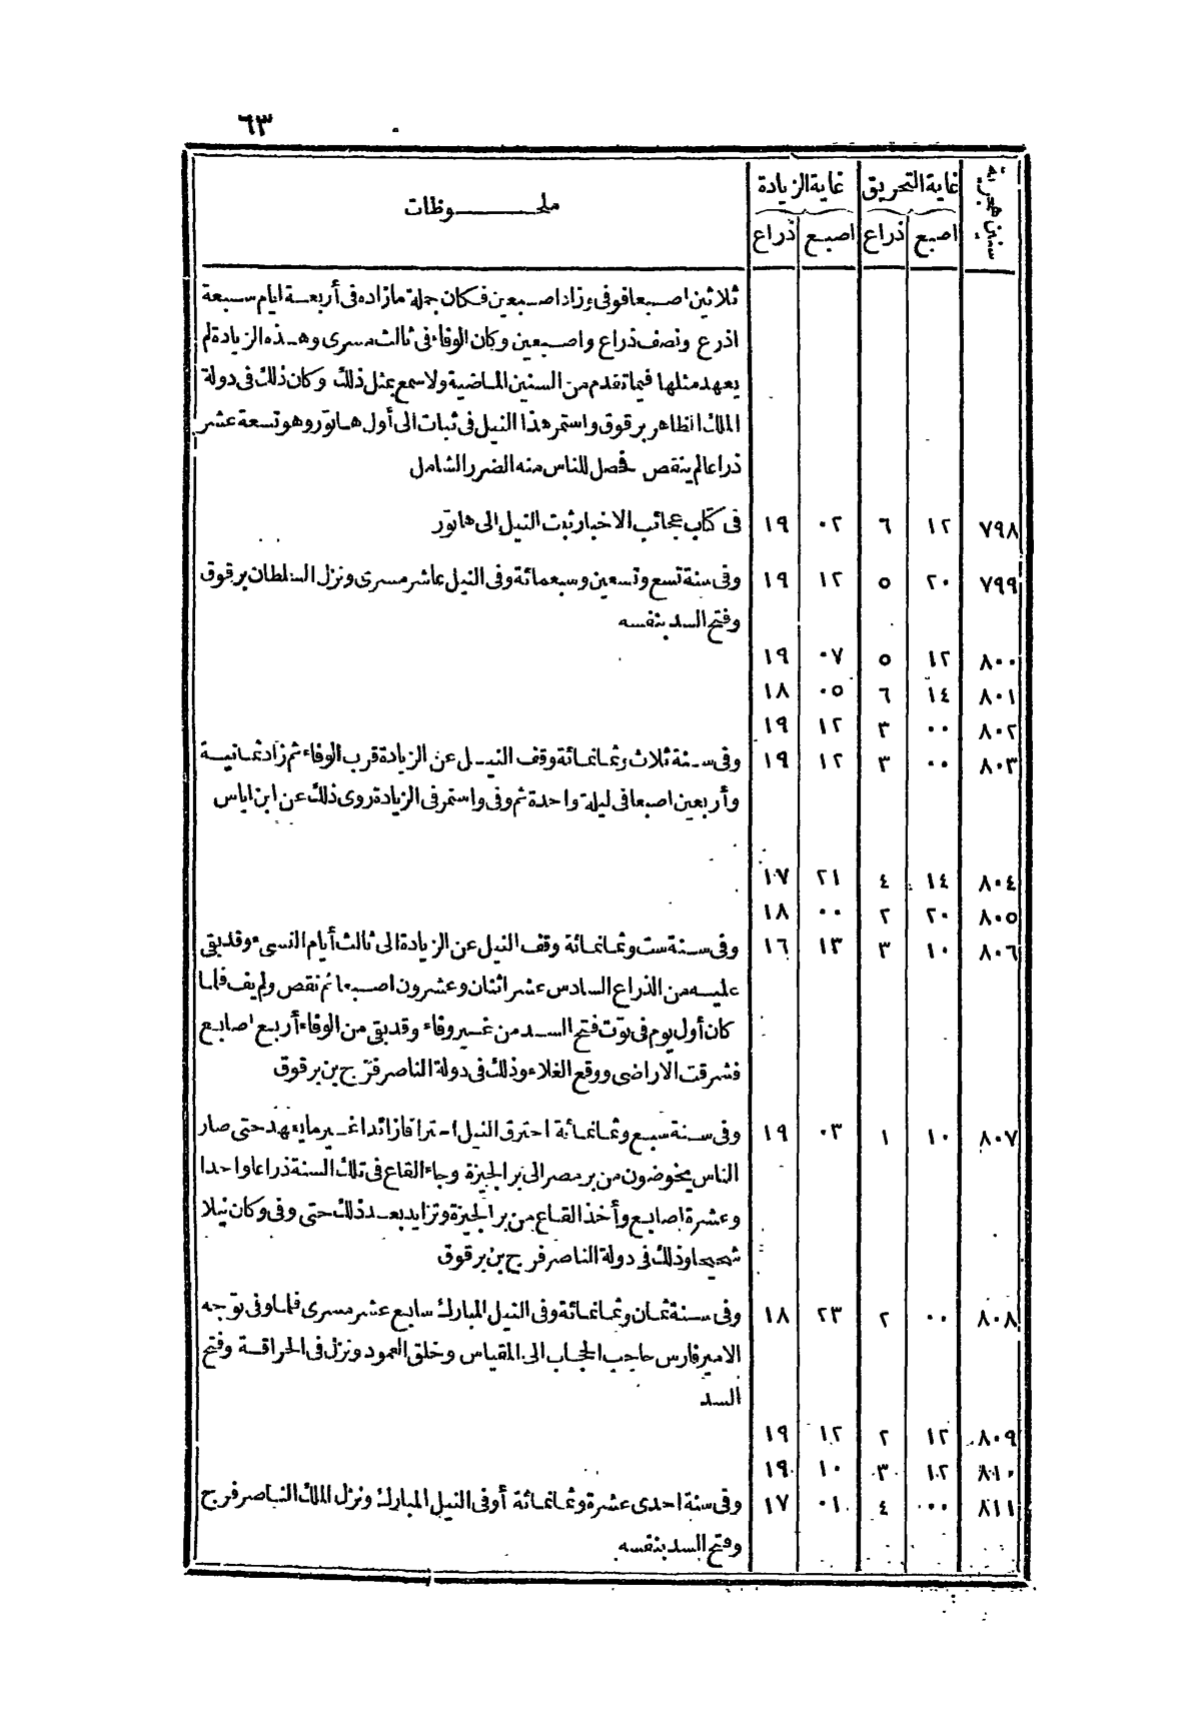 ٦٣
سنين هجرية غاية التحريق غاية الزيادة ملحوظات
اصبع ذراع اصبع ذراع
ثلاثين اصبعا فوفى وزاد اصبعين فكان جملة مازاده فى أربعة ايام سبعة
اذرع ونصف ذراع واصبعين وكان الوفاء فى ثالث مسرى وهذه الزيادة لم
يعهد مثلها فيما تقدم من السنين الماضية ولا سمع بمثل ذلك وكان ذلك فى دولة
الملك الظاهر برقوق واستمر هذا النيل فى ثبات الى أول هاتور وهو تسعة عشر
ذراعا لم ينقص فحصل للناس منه الضرر الشامل
٧٩٨ ١٢ ٦ ٠٢ ١٩ فى كتاب عجائب الاخبار ثبت النيل الى هاتور
٧٩٩ ٢٠ ٥ ١٢ ١٩ وفى سنة تسع وتسعين وسبعمائة وفى النيل عاشر مسرى ونزل السلطان برقوق
وفتح السد بنفسه
٨٠٠ ١٢ ٥ ٠٧ ١٩
٨٠١ ١٤ ٦ ٠٥ ١٨
٨٠٢ ٠٠ ٣ ١٢ ١٩
٨٠٣ ٠٠ ٣ ١٢ ١٩ وفى سنة ثلاث وثمانمائة وقف النيل عن الزيادة قرب الوفاء ثم زاد ثمانية
وأربعين اصبعا فى ليلة واحدة ثم وفى واستمر فى الزيادة روى ذلك عن ابن اياس
٨٠٤ ١٤ ٤ ٢١ ١٧
٨٠٥ ٢٠ ٢ ٠٠ ١٨
٨٠٦ ١٠ ٣ ١٣ ١٦ وفى سنة ست وثمانمائة وقف النيل عن الزيادة الى ثالث أيام النسىء وقد بقى
عليه من الذراع السادس عشر اثنتان وعشرون اصبعا ثم نقص ولم يف فلما
كان أول يوم فى توت فتح السد من غير وفاء وقد بقى من الوفاء أربع اصابع
فشرقت الاراضى ووقع الغلاء وذلك فى دولة الناصر فرّج بن برقوق
٨٠٧ ١٠ ١ ٠٣ ١٩ وفى سنة سبع وثمانمائة احترق النيل احتراقا زائدا غير ما يعهد حتى صار
الناس يخوضون من بر مصر الى بر الجيزة وجاء القاع فى تلك السنة ذراعا واحدا
وعشرة اصابع وأخذ القاع من بر الجيزة وتزايد بعد ذلك حتى وفى وكان نيلا
شحيحا وذلك فى دولة الناصر فرج بن برقوق
٨٠٨ ٠٠ ٢ ٢٣ ١٨ وفى سنة ثمان وثمانمائة وفى النيل المبارك سابع عشر مسرى فلما وفى توجه
الامير فارس حاجب الحجاب الى المقياس وخلق العمود ونزل فى الحراقة وفتح
السد
٨٠٩ ١٢ ٢ ١٢ ١٩
٨١٠ ١٢ ٣ ١٠ ١٩
٨١١ ٠٠ ٤ ٠١ ١٧ وفى سنة احدى عشرة وثمانمائة أوفى النيل المبارك ونزل الملك الناصر فرج
وفتح السد بنفسه